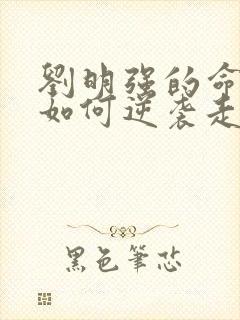 劉明強的命
如何逆袭走
黑色筆芯